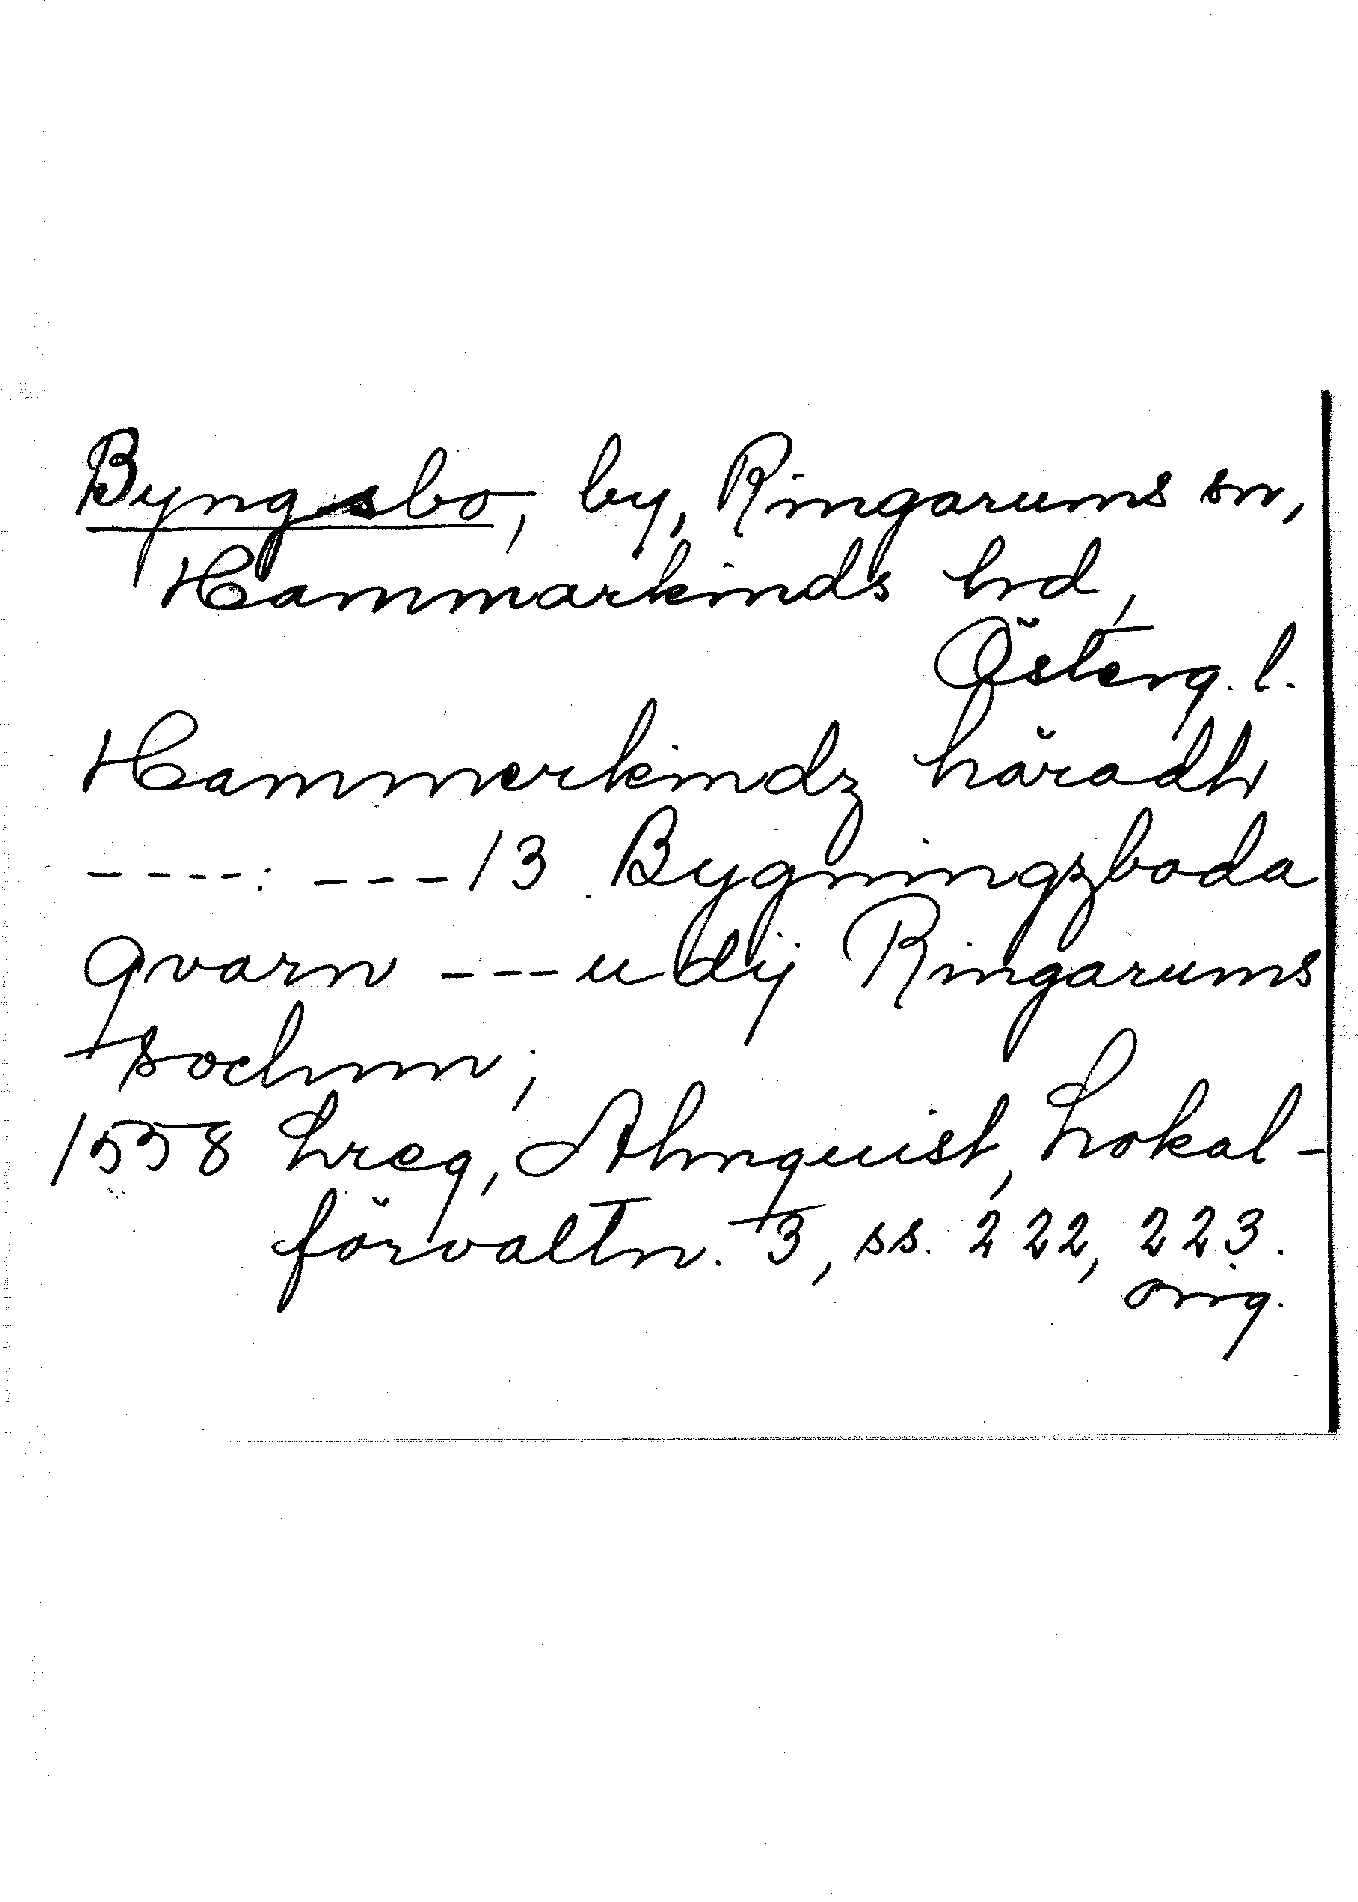 Byngsbo, by, Ringarums sn,
Hammarkinds hrd,
Österg. l.
Hammerkindz häradh
----: ---13 Bygningzboda
qvarn ---udij Ringarums
sochnn;
1558 hreg, Almquist, Lokal-
förvaltn. 3, ss. 222, 223.
orig.